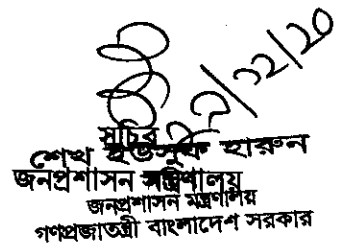 সচিব
শেখ ইউসুফ হারুন
জনপ্রশাসন মন্ত্রণালয়
জনপ্রশাসন মন্ত্রণালয়
গণপ্রজাতন্ত্রী বাংলাদেশ সরকার